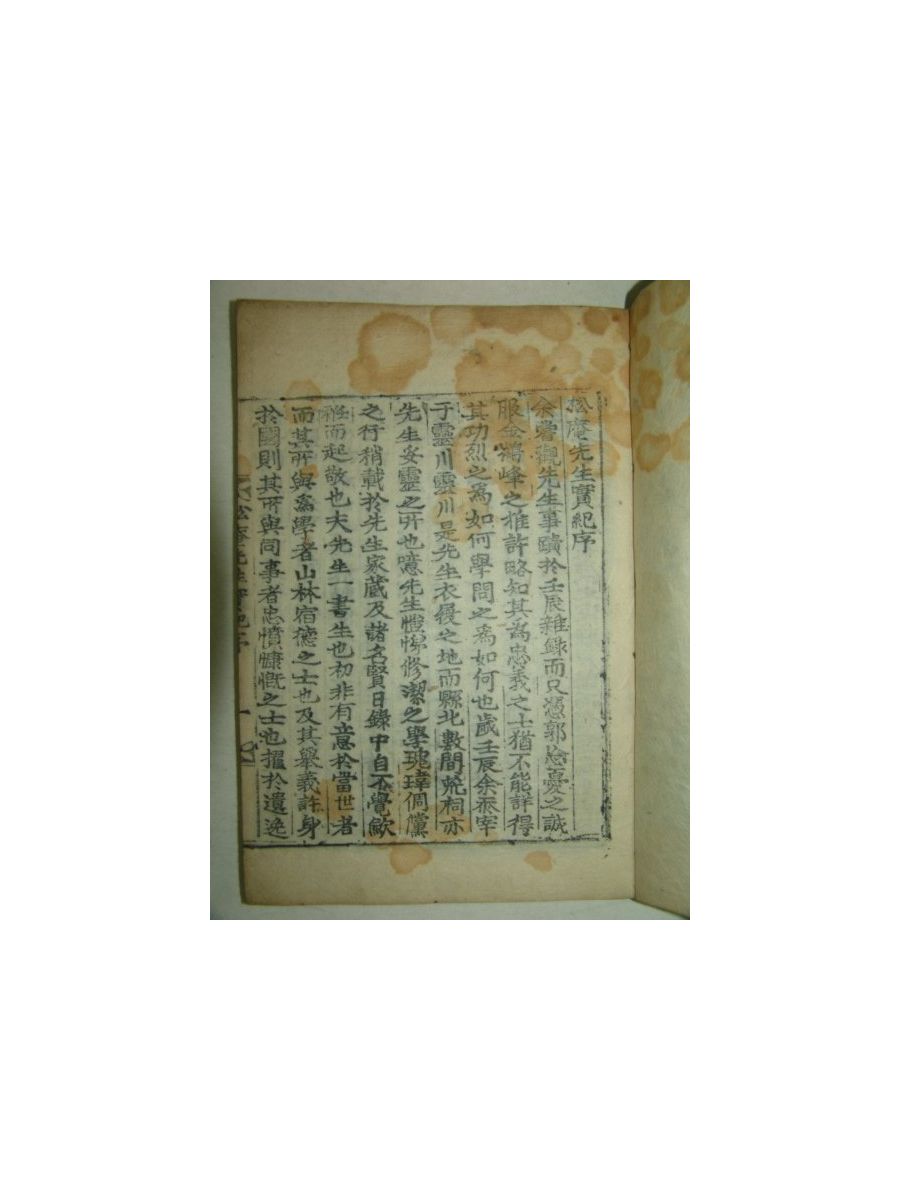 松庵先生實紀序
余嘗觀先生事蹟於壬辰雜錄而只憑郭忘憂之誠
服金鶴峰之推許略知其為忠義之士猶不能詳得
其功烈之為如何學問之為如何也歲壬辰余忝宰
于靈川靈川是先生衣履之地而縣北數間荒祠亦
先生妥靈之所也噫先生愷悌修潔之學瑰瑋倜儻
之行稍載於先生家藏及諸名賢日錄中自不覺歛
衽而起敬也夫先生一書生也初非有意於當世者
而其所與為學者山林宿德之士也及其舉義許身
於國則其所與同事者忠憤慷慨之士也擢於遺逸
松庵先生實紀序 一